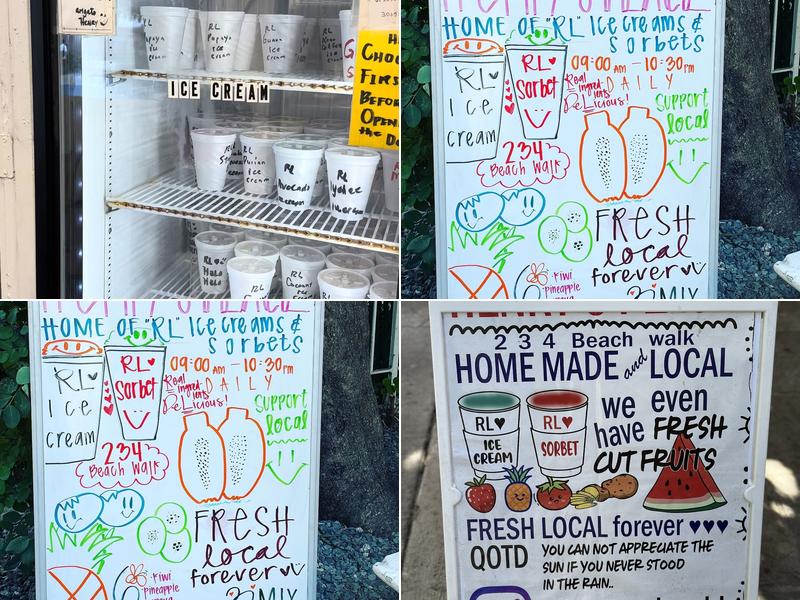 arigato
Henry
RL
Papaya
Ice
cream
RL
Guava
Ice
cream
RL
ICE CREAM
CHO
FIRS
BEFOR
OPEN
the Do
RL
Durian
Ice
cream
RL
Avocado
Ice cream
RL
Lychee
RL
Halo
Halo
RL
RL
Coconut
HOME OF "RL" Ice creams &
sorbets
RL
Ice
cream
RL
Sorbet
09:00 am – 10:30 pm
DAILY
Real
ingred-
ients
DeLicious!
Support
local
234
Beach Walk
FRESH
local
forever
kiwi
pineapple
MIX
HOME OF "RL" Ice creams &
sorbets
RL
Ice
cream
RL
Sorbet
09:00 am – 10:30 pm
DAILY
Real
ingred-
ients
DeLicious!
Support
local
234
Beach Walk
FRESH
local
forever
kiwi
pineapple
MIX
2 3 4 Beach walk
HOME MADE and LOCAL
RL
ICE
CREAM
RL
SORBET
we even
have FRESH
CUT FRUITS
FRESH LOCAL forever
QOTD YOU CAN NOT APPRECIATE THE
SUN IF YOU NEVER STOOD
IN THE RAIN..